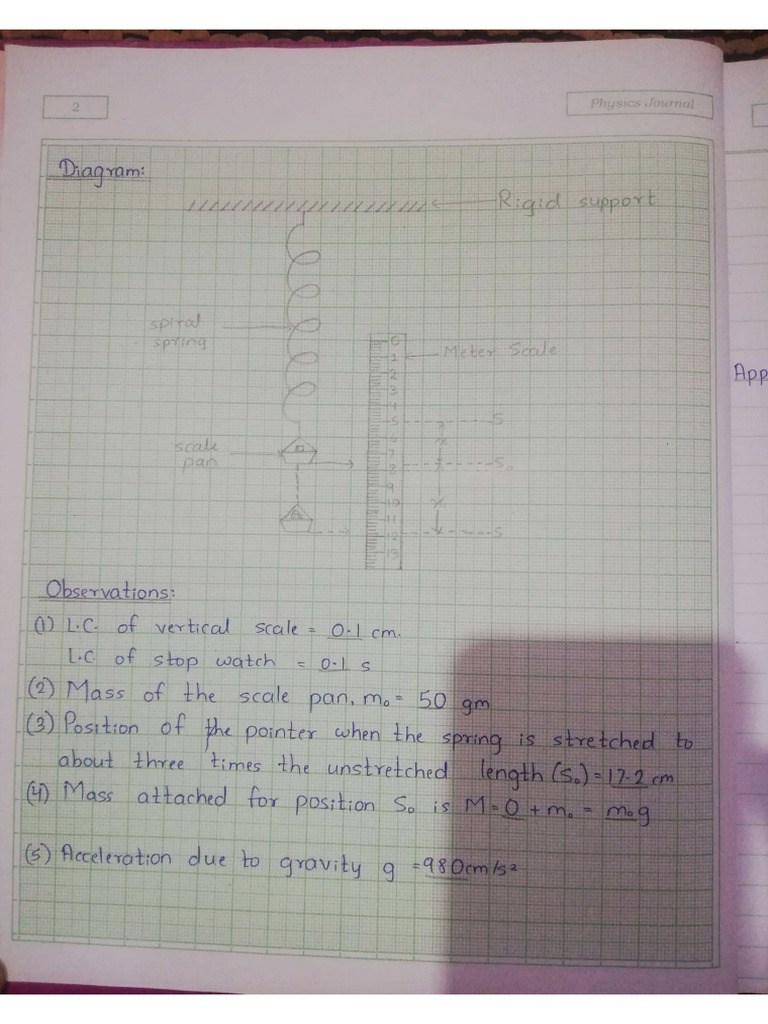 2
Physics Journal
Diagram:
Rigid support
spiral
spring
0
1
Meter Scale
2
3
4
5
S
6
x
scale
pan
7
8
S₀
9
10
x
11
12
S
13
App
Observations:
(1) L.C. of vertical scale = 0.1 cm.
L.C. of stop watch = 0.1 s
(2) Mass of the scale pan, m₀ = 50 gm
(3) Position of the pointer when the spring is stretched to
about three times the unstretched length (S₀) = 17.2 cm
(4) Mass attached for position S₀ is M = 0 + m₀ = m₀g
(5) Acceleration due to gravity g = 980cm/s²